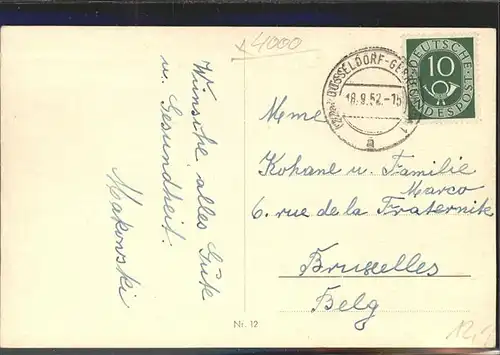 x 4000
Wünsche alles Gute
u. Gesundheit.
Makowski
DÜSSELDORF-GER
18.9.52.-15
a
DEUTSCHE
BUNDESPOST
10
Mme
Kohane u. Familie
Marco
6. rue de la Fraternité
Bruxelles
Belg
Nr. 12